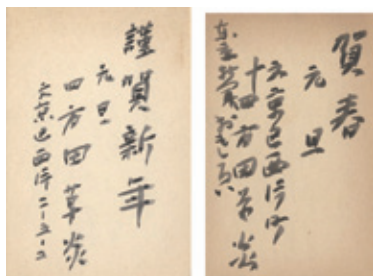 謹賀新年
元旦
四方田草炎
文京区西片二ー五ー二
賀春
元旦
文京区西片町
十 四方田草炎